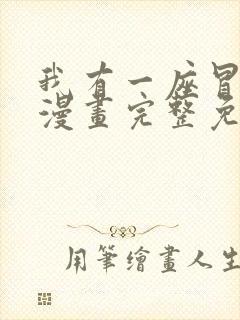 我有一座冒
漫畫完整免
用筆繪畫人生